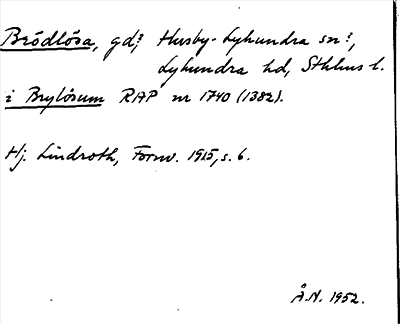 Brödlösa, gd? Husby-Lyhundra sn?,
Lyhundra hd, Sthlms l.
i Brylösum RAP nr 1740 (1382).
Hj. Lindroth, Fornv. 1915, s. 6.
Å.N. 1952.